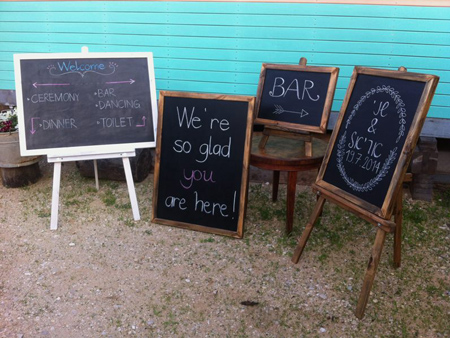 Welcome
CEREMONY
• DINNER
• BAR
• DANCING
• TOILET
We're
so glad
you
are here!
BAR
&
19.7.2014